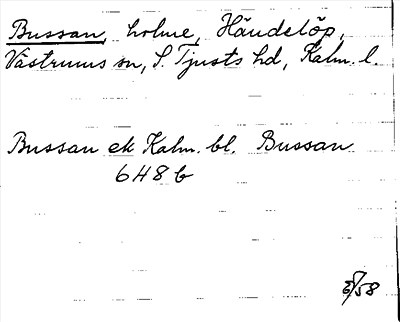 Bussan, holme, Händelöp,
Västrums sn, S. Tjusts hd, Kalm. l.
Bussan ek Kalm. bl. Bussan
6H8b
/58